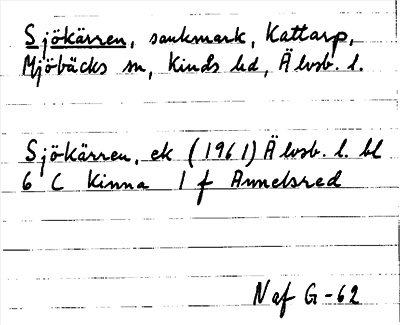 Sjökärren, sankmark, Kattarp,
Mjöbäcks sn, Kinds hd, Älvsb. l.
Sjökärren, ek (1961) Älvsb. l. bl
6 C Kinna 1 f Annelsred
Naf G-62